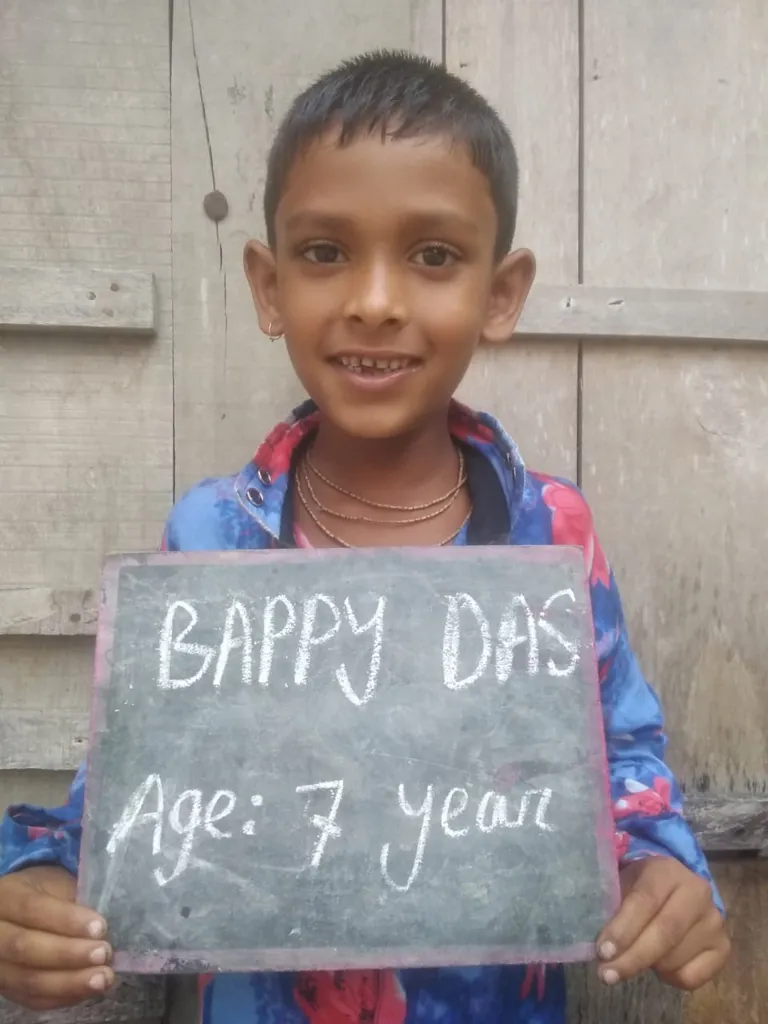 BAPPY DAS
Age: 7 year